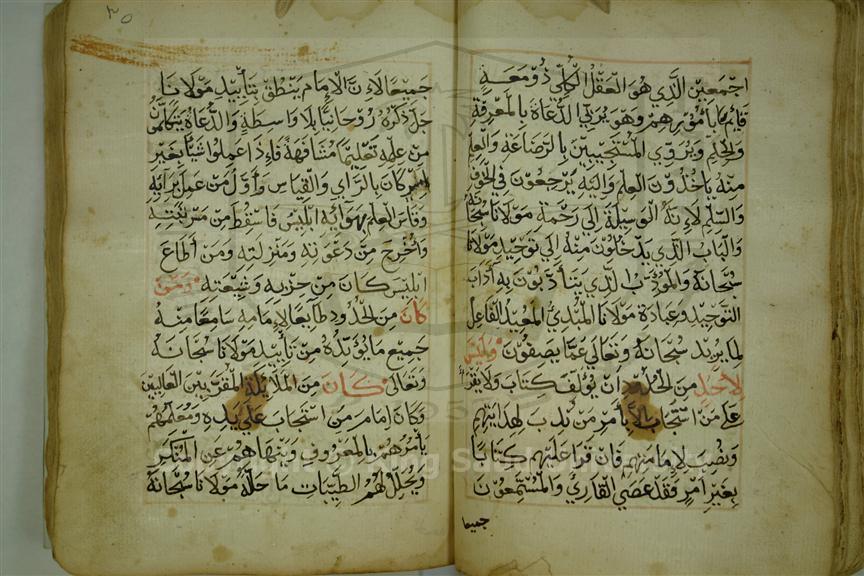 اجْمَعِيْن الَّذِي هُوَ العَقْلُ الْكُلِّي ذُوْ مَعَةٍ
قَائِم بِامُوْرِهِمْ وَهُوَ يُرَبِّي الدُّعَاةَ بِالْمَعْرِفَةِ
وَالحِلْمِ وَيُرَوِّي الْمُسْتَجِيْبِيْنَ بِالرَّضَاعَةِ وَالْعِلْمِ
مِنْهُ يَاخُذُوْنَ العِلْمَ وَالَيْهِ يَرْجِعُوْنَ فِي الخَوْفِ
وَالسِّلْمِ لِاَنَّهُ الْوَسِيْلَةُ اِلَي رَحْمَةِ مَوْلَانَا سُبْحَانَهُ
وَالْبَابُ الَّذِي يَدْخُلُوْنَ مِنْهُ اِلَي تَوْحِيْدِ مَوْلَانَا
سُبْحَانَهُ وَالْمُؤَدِّبُ الَّذِي يَتَأَدَّبُوْنَ بِهِ أَدَابَ
التَّوْحِيْدِ وَعِبَادَةِ مَوْلَانَا الْمُبْدِي الْمُعِيْدِ الْفَاعِلِ
لِمَا يُرِيْد سُبْحَانَهُ وَتَعَالَي عَمَّا يَصِفُوْنَ وَلَيْسَ
لِأَحَدٍ مِنَ الْحُدُوْدِ اَنْ يُؤَلِّفَ كِتَاب وَلَا يَقْرَأ
عَلَي مَنْ اسْتَجَابَ اِلَّا بِأَمْرِ مَنْ نُدِبَ لِهِدَايَتِهِمْ
وَنُصِبَ لِاِمَامَتِهِمْ فَاِنْ قَرَا عَلَيْهِم كِتَابًا
بِغَيْرِ اَمْرٍ فَقَدْ عَصَي الْقَارِئ وَالْمُسْتَمِعُوْنَ
جميعا
٣٠
جَمِيْعًا لِاَنَّ الْاِمَام يَنْطُق بِتَأْيِيْدِ مَوْلَانَا
جَلَّ ذِكْرُهُ رُوْحَانِيًّا بِلَا وَاسِطَةٍ وَالدُّعَاةُ يَتَكَلَّمُوْنَ
مِنْ عِلْمِهِ تَعْلِيْمًا مُشَافَهَةً فَاِذَا عَمِلُوا شَيْأً بِغَيْرِ
اَمْرِهِ كَانَ بِالرَّأْيِ وَالْقِيَاسِ وَاَوَّلُ مَنْ عَمِلَ بِرَأْيِهِ
وَقَاسَ الْعِلْمَ بِهَوَايَهُ اِبْلِيْسُ فَاُسْقِطَ مِنْ مَرْتَبَتِهِ
وَاُخْرِجَ مِنْ دَعْوَتِهِ وَمَنْزِلَتِهِ وَمَنْ اَطَاعَ
اِبْلِيْسَ كَانَ مِنْ حِزْبِهِ وَشِيْعَتِهِ وَمَنْ
كَانَ مِنَ الْحُدُوْدِ طَايِعًا لِاِمَامِهِ سَامِعًا مِنْهُ
جَمِيْعَ مَا يُؤَيِّدُهُ مِنْ تَأْيِيْدِ مَوْلَانَا سُبْحَانَهُ
وَتَعَالَي كَانَ مِنَ الْمَلَايِكَةِ الْمُقَرَّبِيْنَ الْعَالِيِيْن
وَكَانَ اِمَامَ مَنِ اسْتَجَابَ عَلَي يَدِهِ وَمُعَلِّمَهُمْ
يَأْمُرُهُمْ بِالْمَعْرُوْفِ وَيَنْهَاهُمْ عَنِ الْمُنْكَرِ
وَيُحَلِّلُ لَهُمُ الطَّيِّبَات مَا حَلَّلَهُ مَوْلَانَا سُبْحَانَهُ